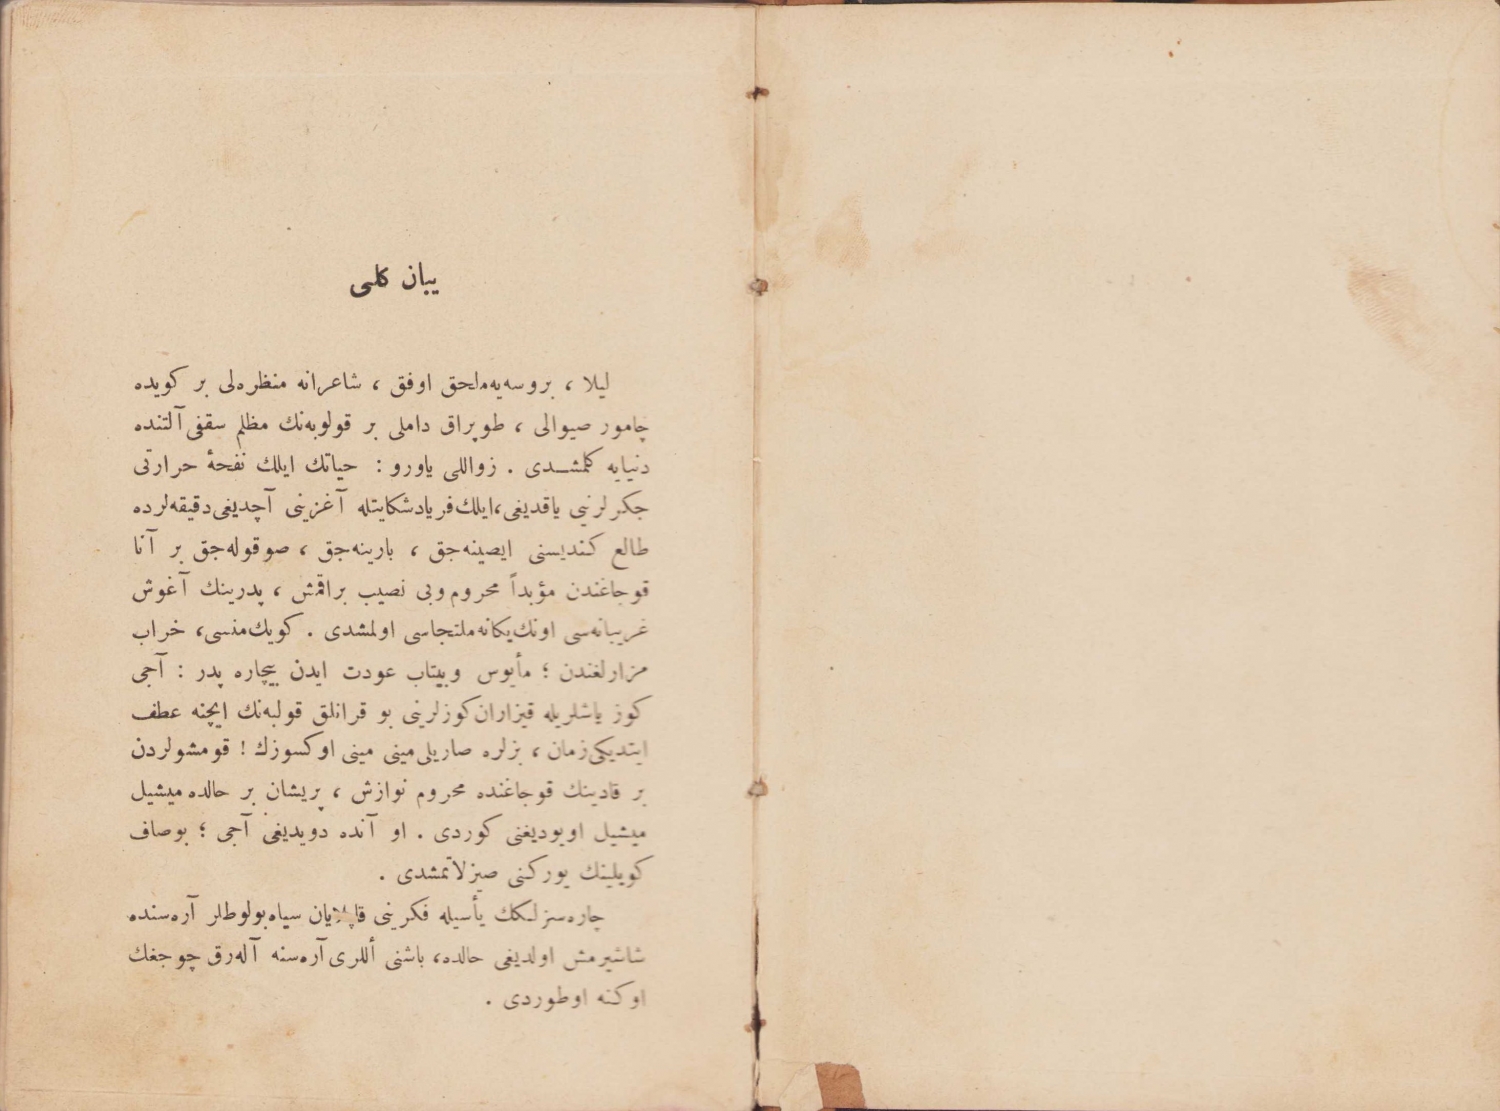 يبان كلى
ليلا ، بروسه‌يه‌ملحق اوفق ، شاعرانه منظره‌لى بر كويده
چامور صيوالى ، طوپراق داملى بر قولوبه‌نك مظلم سقفى آلتنده
دنيايه كلمشـدى . زواللى ياورو : حياتك ايلك نفحهٔ حرارتى
جكرلرنيى ياقديغى،ايلك‌فريادشكايتله آغزينى آچديغى‌دقيقه‌لرده
طالع كنديسنى ايصينه‌جق ، بارينه‌جق ، صوقوله‌جق بر آنا
قوجاغندن مؤبداً محروم وبى نصيب براقمش ، پدرينك آغوش
غريبانه‌سى اونك‌يكانه‌ملتجاسى اولمشدى . كويك‌منسى، خراب
مزارلغندن ؛ مأيوس وبيتاب عودت ايدن بيچاره پدر : آجى
كوز ياشلريله قيزاران‌كوزلرينى بو قرانلق قولبه‌نك ايچنه عطف
ايتديكى‌زمان ، بزلره صاريلى‌مينى مينى اوكسوزك ! قومشولردن
بر قادينك قوجاغنده محروم نوازش ، پريشان بر حالده ميشيل
ميشيل اويوديغنى كوردى . او آنده دويديغى آجى ؛ بوصاف
كويلينك يوركنى صيزلاتمشدى .
چاره‌سزلكك يأسيله فكرينى قاپلايان سياه‌بولوطلر آره‌سنده
شاشيرمش اولديغى حالده، باشنى أللرى‌آره‌سنه آله‌رق چوجغك
اوكنه اوطوردى .